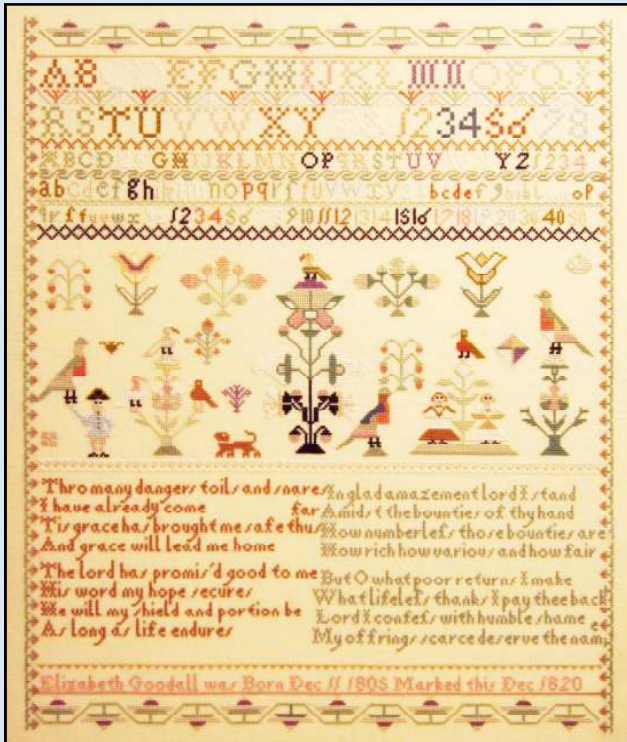 AB EFGHIJKL MN OPQ
RSTU VW XY 123456 78
ABCD GH IJKLMN OP QRSTUV YZ 1234
abcdefgh nopqrſ uvwxy bcdefg hikl op
qrſtuvwx 123456 9 10 11 12 13 14 15 16 17 18 19 20 30 40 50
Thro many dangers toils and snares
I have already come far
Tis grace has brought me safe thus
And grace will lead me home
The lord has promis'd good to me
His word my hope secures
He will my shield and portion be
As long as life endures
In glad amazement lord I stand
Amidst the bounties of thy hand
How numberleſs those bounties are
How rich how various and how fair
But O what poor returns I make
What lifeleſs thanks I pay thee back
Lord I confeſs with humble shame
My offrings scarce deserve the nam
Elizabeth Goodall was Born Dec 11 1805 Marked this Dec 1820